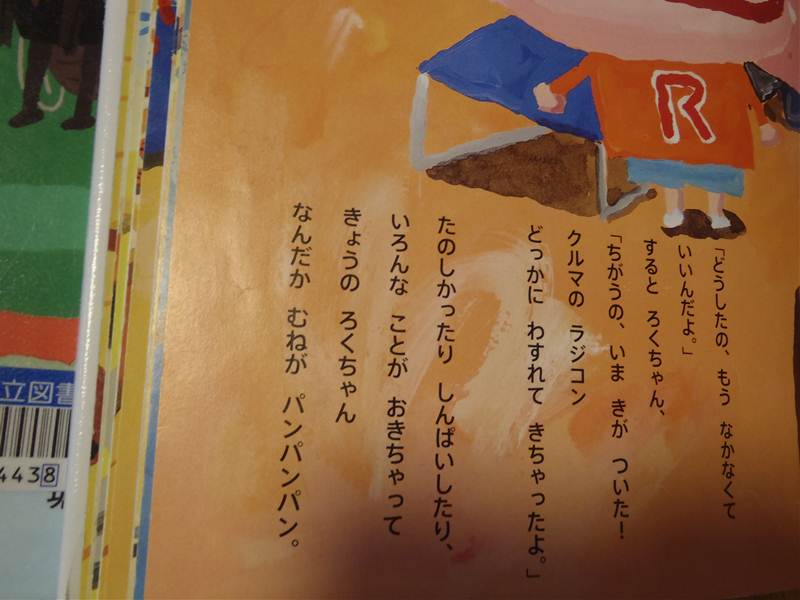 「どうしたの、もう なかなくて
いいんだよ。」
すると ろくちゃん、
「ちがうの、いま きが ついた!
クルマの ラジコン
どっかに わすれて きちゃったよ。」
たのしかったり しんぱいしたり、
いろんな ことが おきちゃって
きょうの ろくちゃん
なんだか むねが パンパンパン。
R
立図書
4438